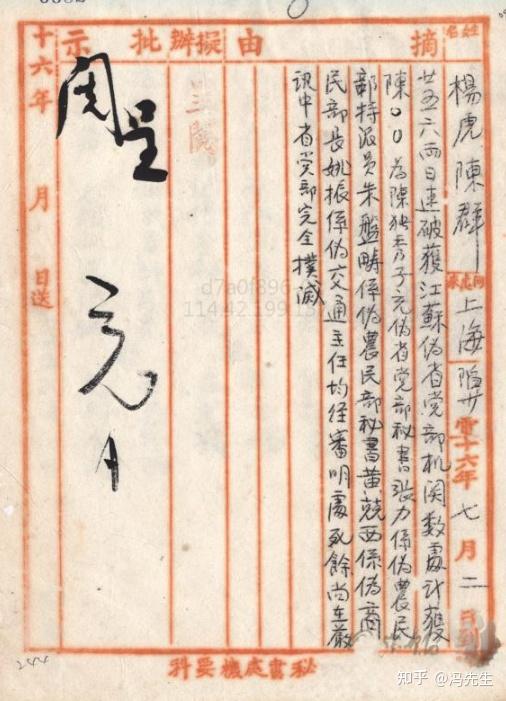 姓名 楊虎 陳群 何處來 上海 陷廿電 十六年七月二日到
摘由
廿五六兩日連破獲江蘇偽省党部机関数處計獲
陳〇〇為陳独秀子充偽省党部秘書張力係偽農民
部特派員朱盤疇係偽農民部秘書黄兢西係偽商
民部長姚振係偽交通主任均経審明處死餘尚在嚴
訊中省党部完全撲滅
擬辦
三院
批示
周呈
元月
十六年 月 日送
秘書處機要科
d7a0f896
114.42.199.1
244
知乎 @冯先生